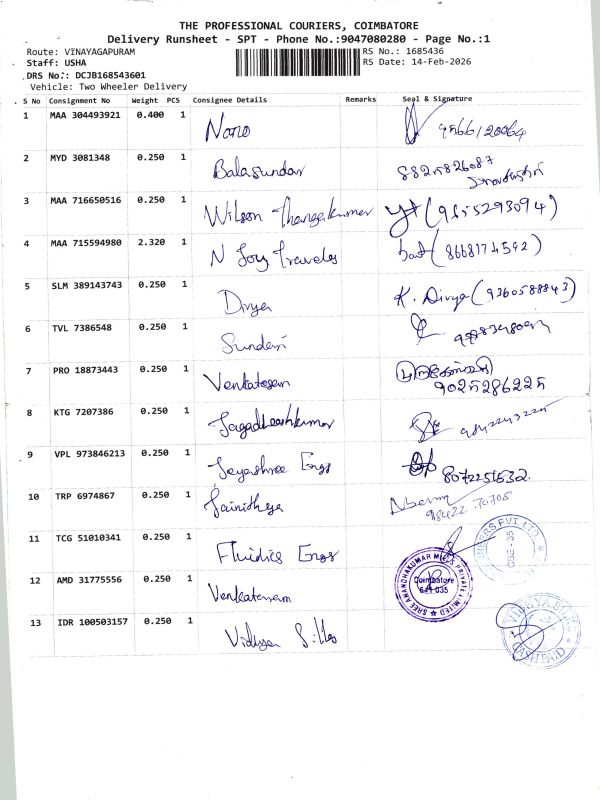 THE PROFESSIONAL COURIERS, COIMBATORE
Delivery Runsheet - SPT - Phone No.:9047080280 - Page No.:1
Route: VINAYAGAPURAM
Staff: USHA
DRS No.: DCJB168543601
Vehicle: Two Wheeler Delivery
RS No.: 1685436
RS Date: 14-Feb-2026
S No Consignment No Weight PCS Consignee Details Remarks Seal & Signature
1 MAA 304493921 0.400 1 Nano
2 MYD 3081348 0.250 1 Balasundar 8825826087
3 MAA 716650516 0.250 1 Wilson Thangakumar (9655293094)
4 MAA 715594980 2.320 1 N Joy Travels (8668174592)
5 SLM 389143743 0.250 1 Divya K. Divya (9360588843)
6 TVL 7386548 0.250 1 Sundari
7 PRO 18873443 0.250 1 Venkatesan 9025286225
8 KTG 7207386 0.250 1 Jagadheeshkumar
9 VPL 973846213 0.250 1 Jeyashree Engs 8072251532.
10 TRP 6974867 0.250 1 98422 70705
11 TCG 51010341 0.250 1 Fluidics Engs
12 AMD 31775556 0.250 1 Venkateswaram
13 IDR 100503157 0.250 1 Vidhya Silks
SREE ANANDHAKUMAR MILLS PRIVATE LIMITED
Coimbatore
641 035
PVT. LTD.
CBE - 35
CASH PAID